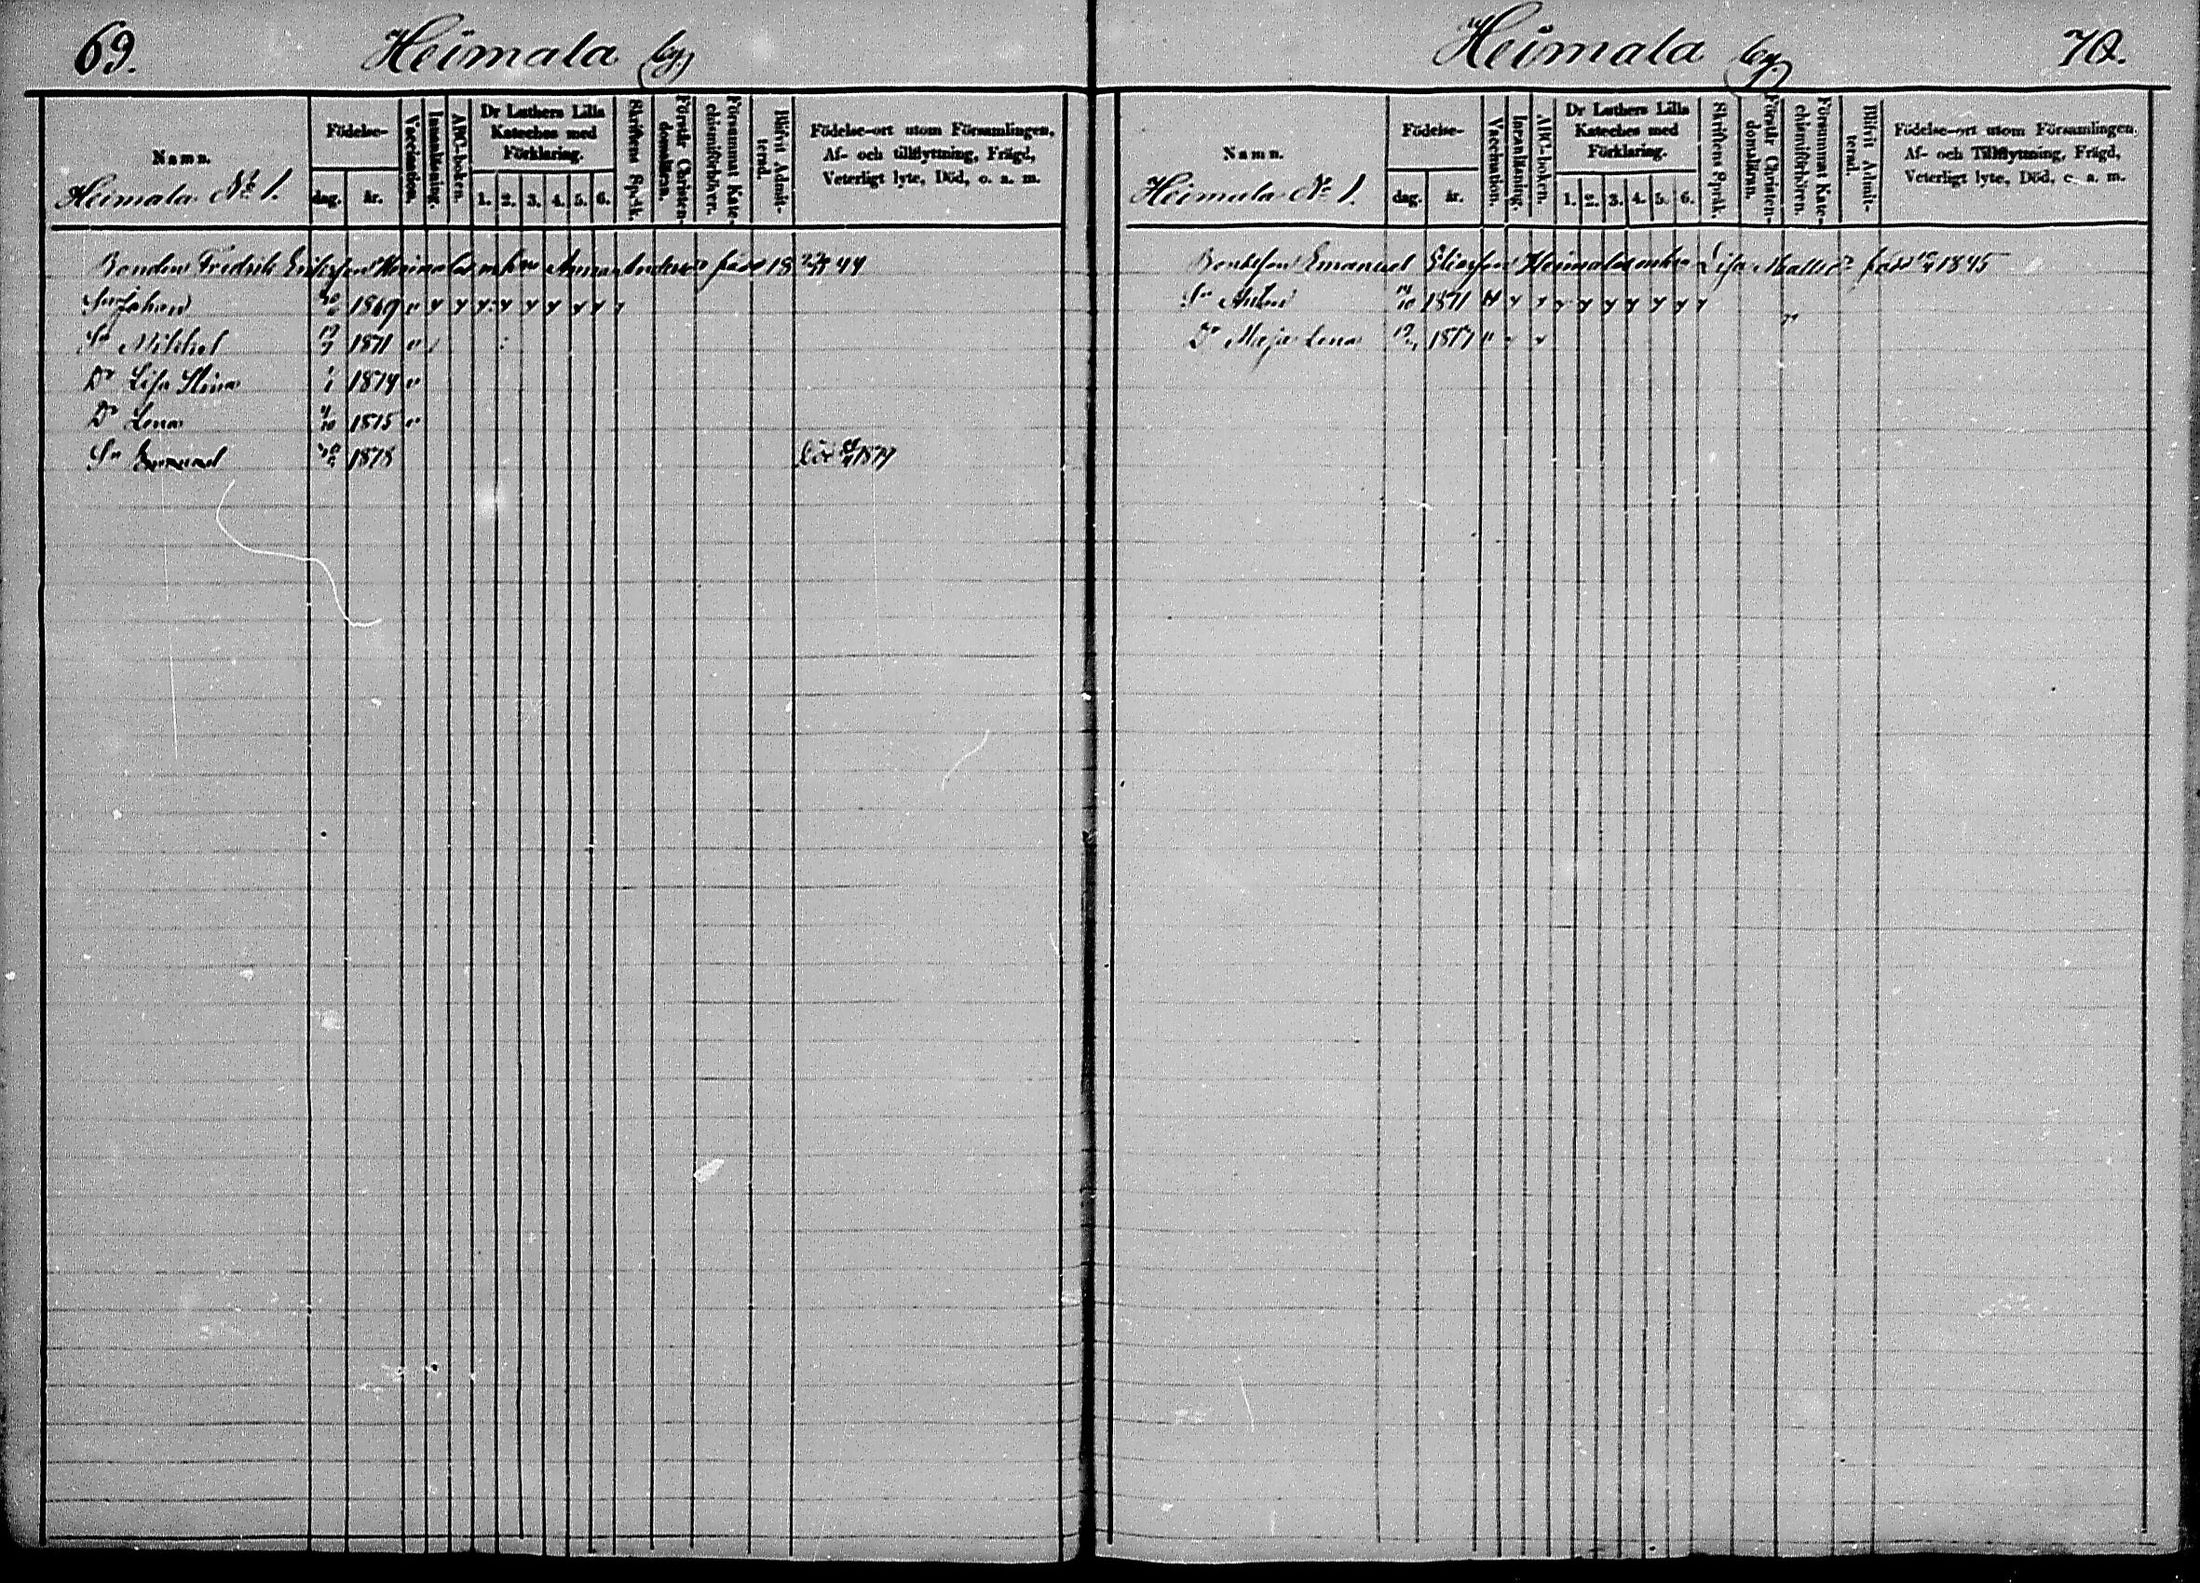 69. Heimala by
Namn.
Heimala № 1.
Födelse-
dag. år.
Vaccination.
Innanläsning.
ABC-boken.
Dr Luthers Lilla
Kateches med
Förklaring.
1. 2. 3. 4. 5. 6.
Skriftens Språk.
Förstår Christen-
domsläran.
Försummat Kate-
chismiförhören.
Blifvit Admit-
terad.
Födelse-ort utom Församlingen,
Af- och tillflyttning, Frägd,
Veterligt lyte, Död, o. a. m.
Bonden Fredrik Heimala Anna född 18 44
Sn Johan 1869
Sn Mikkel 1871
Dr Lisa Stina 1 1 1874
Dr Lena 1875
Sn Emanuel 1878 död 1879
Heimala by 70.
Namn.
Heimala № 1.
Födelse-
dag. år.
Vaccination.
Innanläsning.
ABC-boken.
Dr Luthers Lilla
Kateches med
Förklaring.
1. 2. 3. 4. 5. 6.
Skriftens Språk.
Förstår Christen-
domsläran.
Försummat Kate-
chismiförhören.
Blifvit Admit-
terad.
Födelse-ort utom Församlingen,
Af- och Tillflyttning, Frägd,
Veterligt lyte, Död, o. a. m.
Bondeson Emanuel Eliasson Heimala enka Lisa född 1845
Sn 1871
Dr Maja Lena 1877